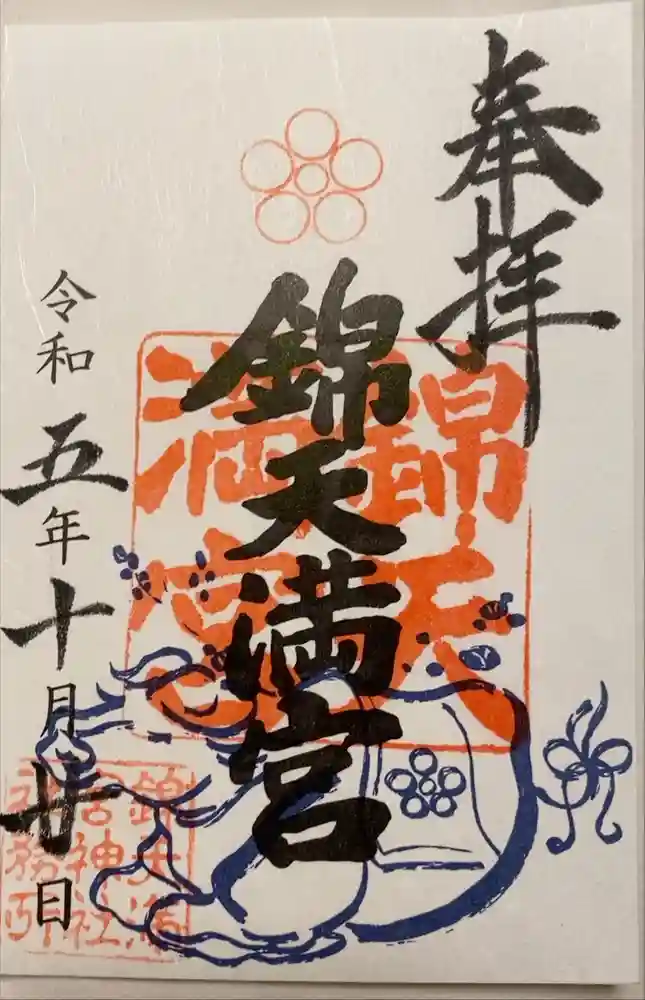 奉拝
錦天満宮
錦天満宮
令和五年十月廿日
錦天満宮神社社務所